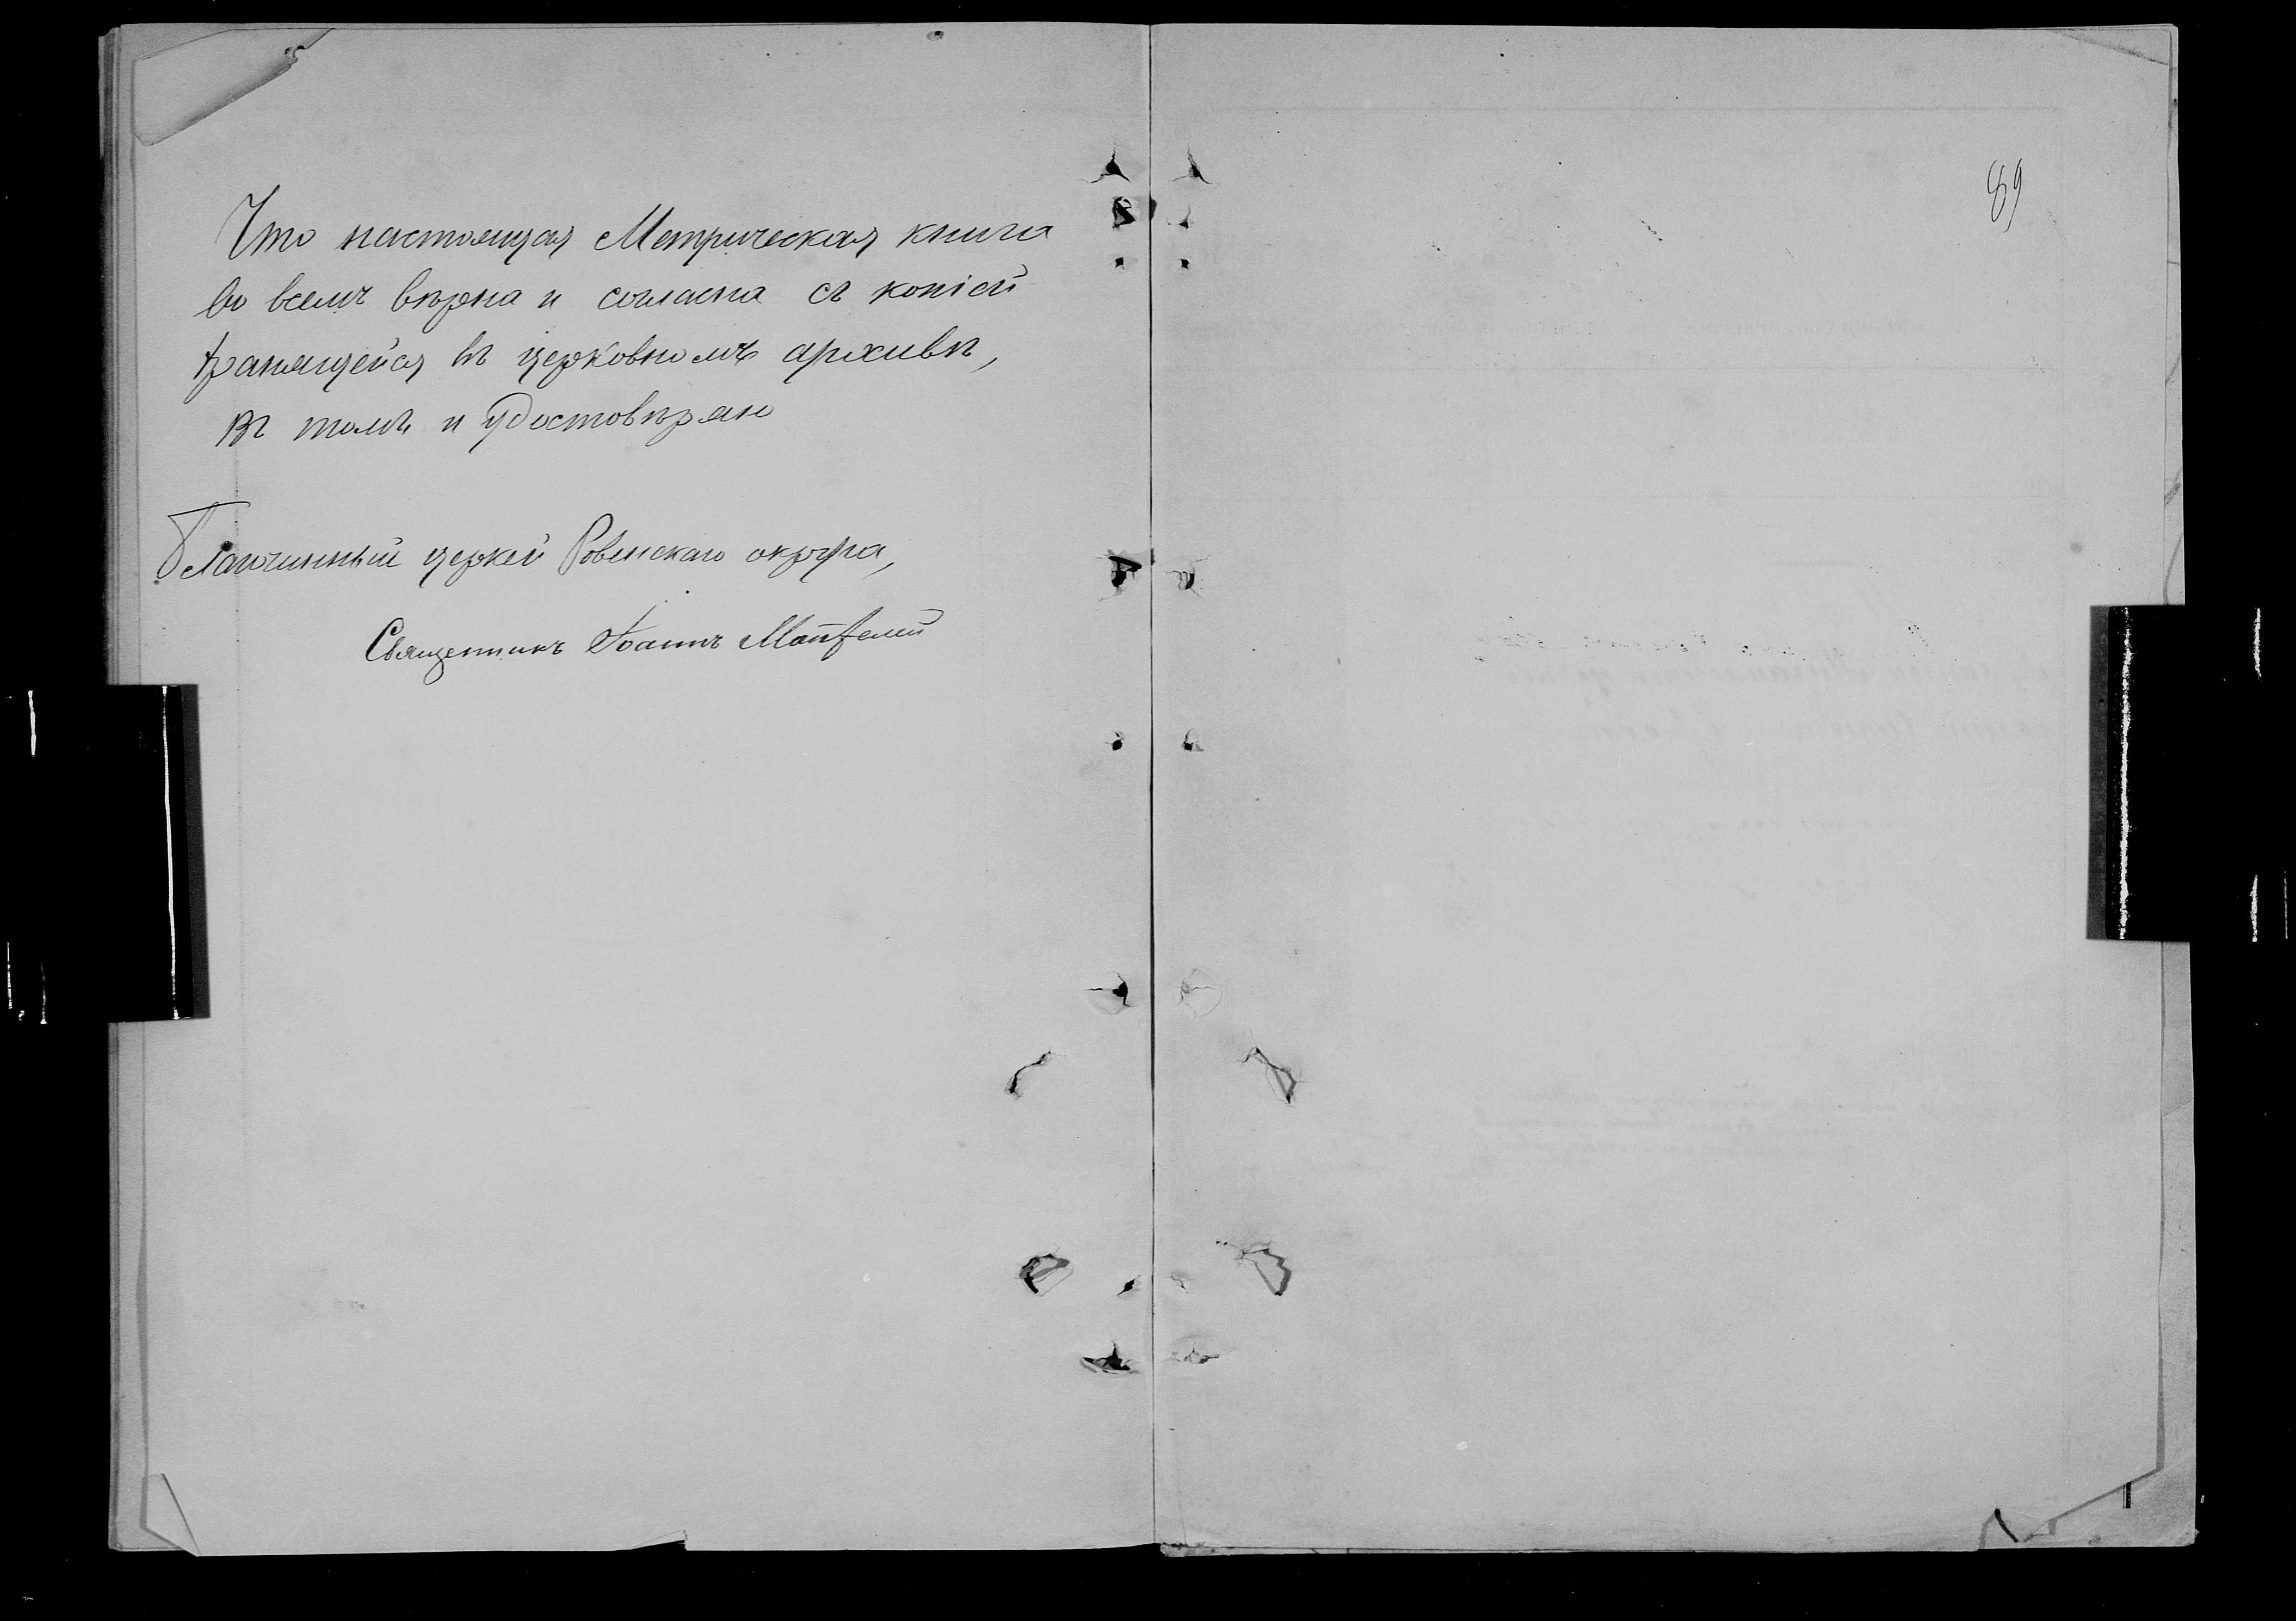 Что настоящая Метрическая книга
во всемъ вѣрна и согласна съ копіей
хранящейся въ церковномъ архивѣ,
въ томъ и удостовѣряю
Благочинный церквей Ровенскаго округа,
Священникъ Іоаннъ
89